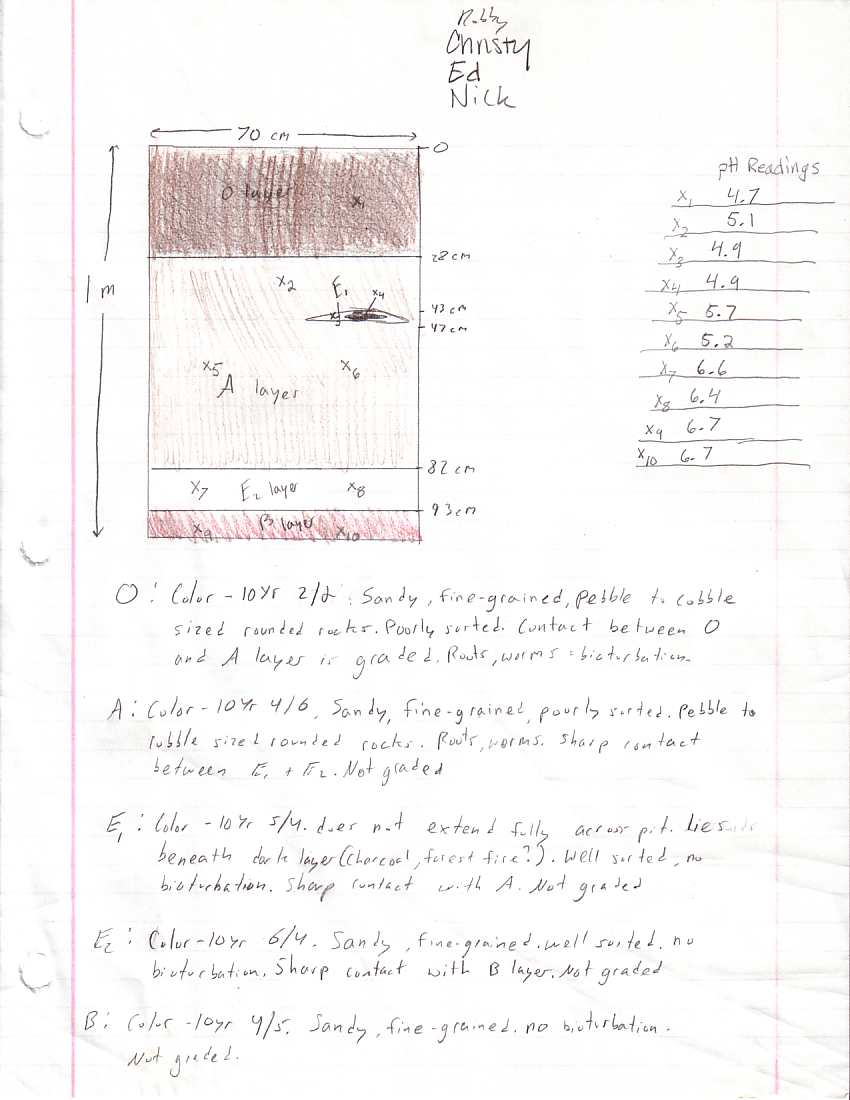 Robby
Christy
Ed
Nick
70 cm
0
pH Readings
O layer
x1
x1 4.7
x2 5.1
x3 4.9
28 cm
x2
E1
x4
x4 4.9
43 cm
x3
x5 5.7
47 cm
1 m
x6 5.2
x5
x6
x7 6.6
A layer
x8 6.4
x9 6.7
x10 6.7
82 cm
x7
E2 layer
x8
93 cm
B layer
x9
x10
O: Color - 10yr 2/2. Sandy, fine-grained, Pebble to cobble
sized rounded rocks. Poorly sorted. Contact between O
and A layer is graded. Roots, worms = bioturbation.
A: Color - 10yr 4/6, Sandy, fine-grained, poorly sorted. Pebble to
cobble sized rounded rocks. Roots, worms. Sharp contact
between E1 + E2. Not graded
E1: Color - 10yr 5/4. does not extend fully across pit. Lies
beneath dark layer (charcoal, forest fire?). Well sorted, no
bioturbation. Sharp contact with A. Not graded
E2: Color - 10yr 6/4. Sandy, fine-grained. well sorted. no
bioturbation. Sharp contact with B layer. Not graded
B: Color - 10yr 4/5. Sandy, fine-grained. no bioturbation.
Not graded.